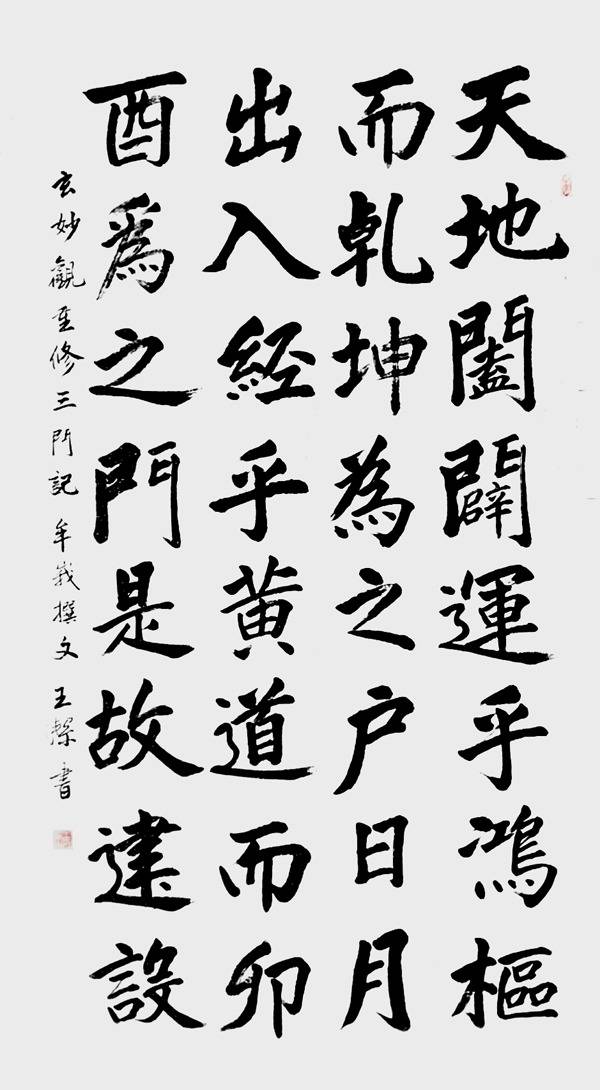 天地闔闢運乎鴻樞
而乾坤為之户日月
出入經乎黄道而卯
酉為之門是故建設
玄妙觀重修三門記 牟 撰文 王 書